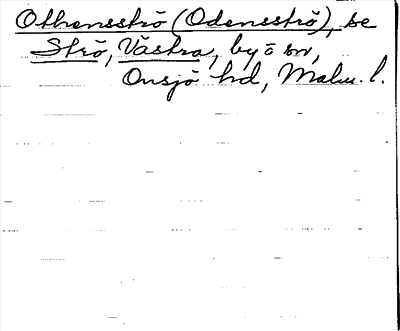 Othensströ (Odensströ), se
Strö, Västra, by ö sn,
Onsjö hd, Malm. l.